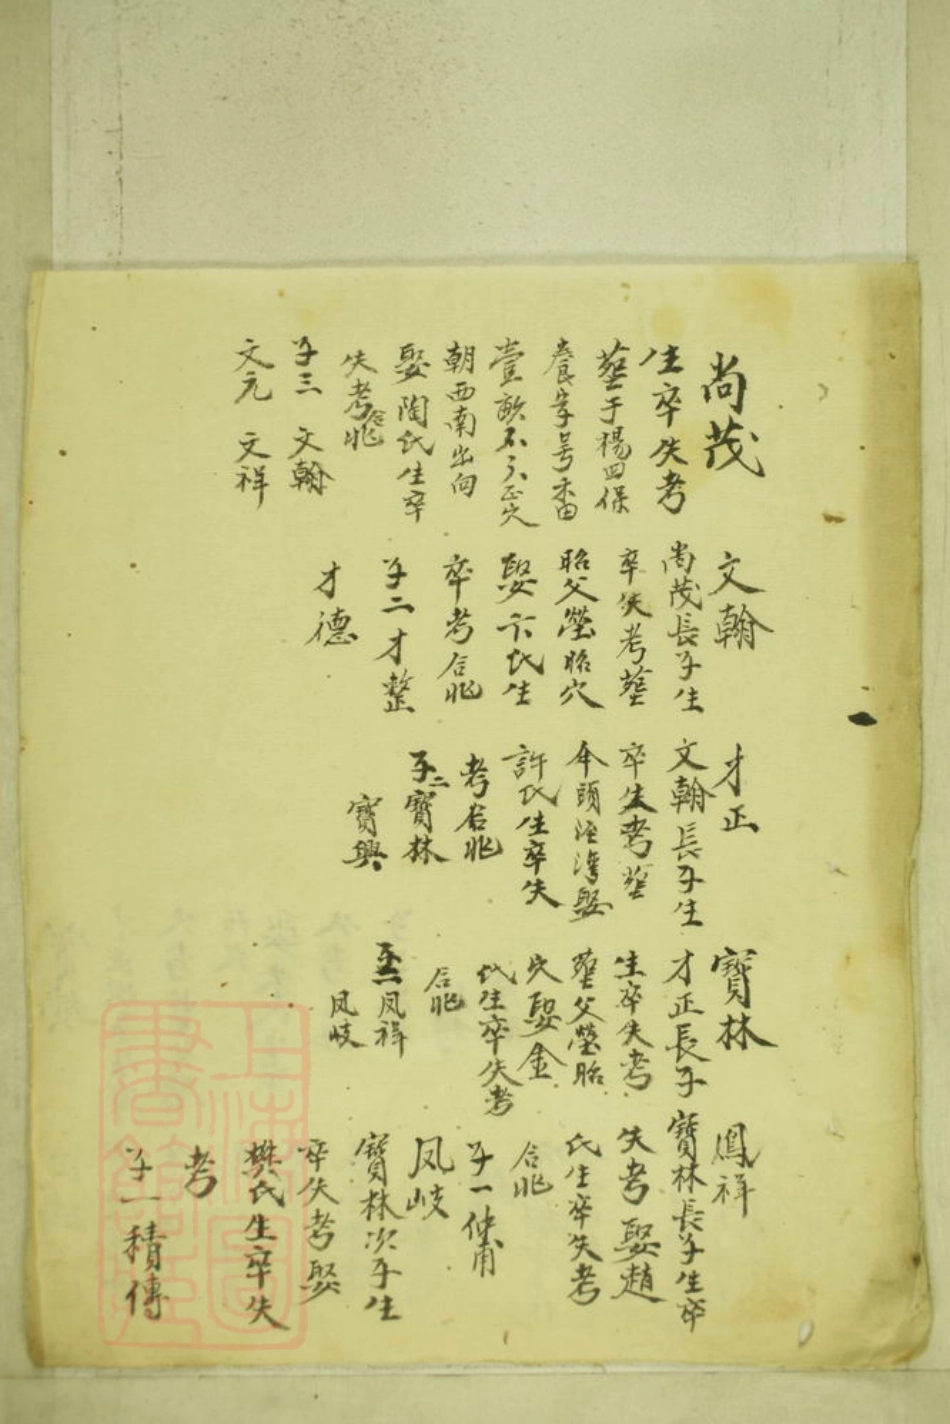 尚茂
生卒失考
塟于楊四保
養字号
壹畝
朝西南出向
娶陶氏生卒
失考合兆
子三 文翰
文元 文祥
文翰
尚茂長子生
卒失考塟
昭父塋昭穴
娶卞氏生
卒考合兆
子二才整
才德
才正
文翰長子生
卒生考塟
娶
許氏生卒失
考合兆
子二寳林
寳興
寳林
才正長子
生卒失考
塟父塋昭
穴娶金
氏生卒失考
合兆
子二凤祥
凤岐
鳳祥
寳林長子生卒
失考娶趙
氏生卒失考
合兆
子一
凤岐
寳林次子生
卒失考娶
樊氏生卒失
考
子一積傳
上海圖
書館藏